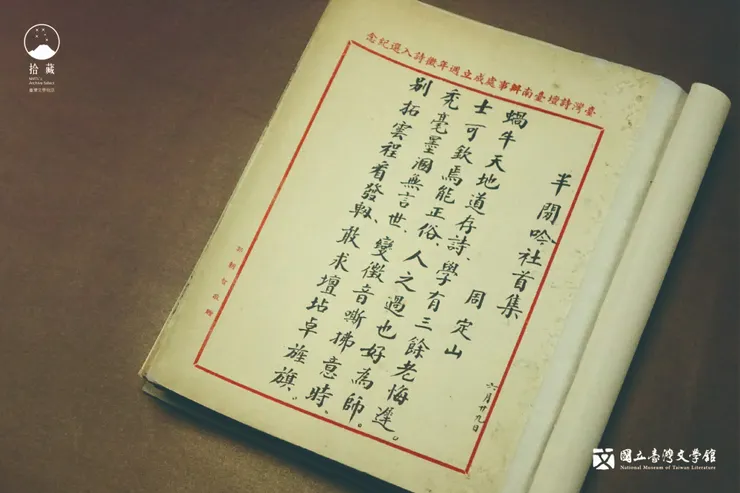 拾藏
臺灣文學物語
臺灣詩壇臺南辦事處成立週年徵詩入選紀念
半閒吟社首集
周定山
六月廿九日
蝸牛天地道存詩、學有三餘老悔遲。
士可欽焉能正俗、人之過也好為師。
禿毫墨涸無言世、變徵音嘶拂意時、
別拓雲程看發軔、敢求壇坫卓旌旗。
國立臺灣文學館
National Museum of Taiwan Literature